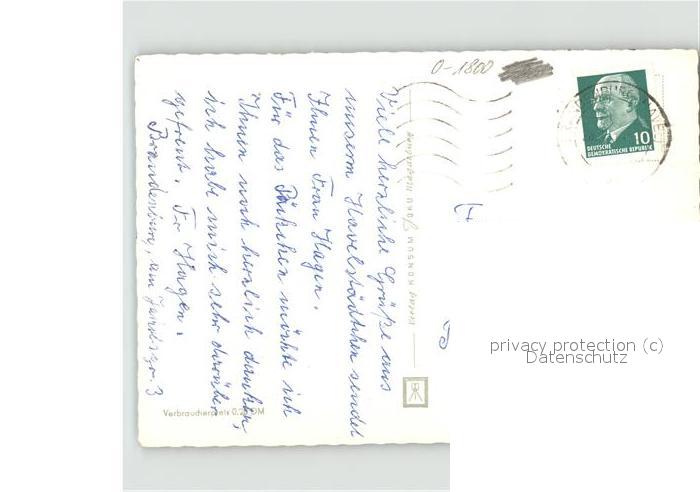 0-1800
Viele herzliche Grüße aus
unserm Havelstädtchen sendet
Ihnen Frau Hagen.
Für das Päckchen möchte ich
Ihnen noch herzlich danken,
ich habe mich sehr darüber
gefreut. Fr. Hagen.
Brandenburg, am 3
KONSUM
Verbraucherpreis 0,20 DM
10
DEUTSCHE
DEMOKRATISCHE REPUBLIK
privacy protection (c)
Datenschutz